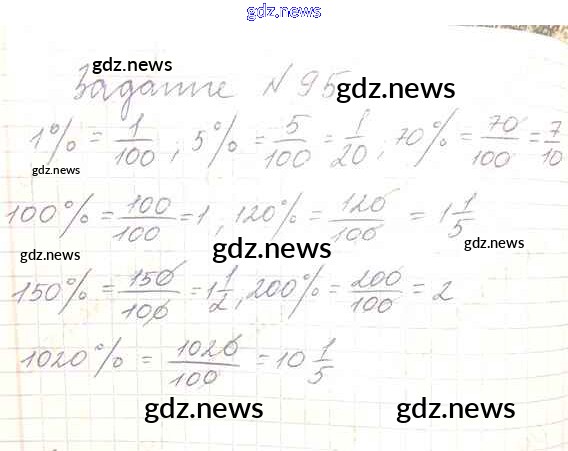 gdz.news
gdz.news
Задание N 95
gdz.news
1% = 1/100 ; 5% = 5/100 = 1/20 , 70% = 70/100 = 7/10
gdz.news
100% = 100/100 = 1 , 120% = 120/100 = 1 1/5
gdz.news gdz.news gdz.news
150% = 150/100 = 1 1/2 , 200% = 200/100 = 2
1020% = 1020/100 = 10 1/5
gdz.news gdz.news